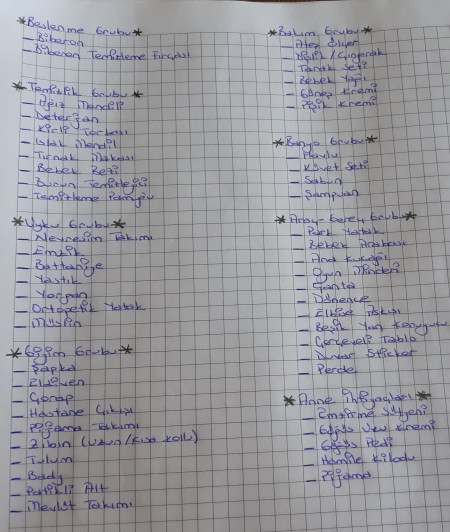 *Beslenme Grubu*
_ Biberon
_ Biberon Temizleme Fırçası
*Temizlik Grubu*
_ Ağız Mendili
_ Deterjan
_ Kirli Torbası
_ Islak Mendil
_ Tırnak Makası
_ Bebek Bezi
_ Burun Temizleyici
_ Temizleme Pamuğu
*Uyku Grubu*
_ Nevresim Takımı
_ Emzik
_ Battaniye
_ Yastık
_ Yorgan
_ Ortopetik Yatak
_ Müslin
*Giyim Grubu*
_ Şapka
_ Eldiven
_ Çorap
_ Hastane Çıkışı
_ Pijama Takımı
_ Zıbın (Uzun/Kısa kollu)
_ Tulum
_ Body
_ Patikli Alt
_ Mevlüt Takımı
*Bakım Grubu*
_ Ateş Ölçer
_ Dişlik/Çıngırak
_ Tarak Seti
_ Bebek Yağı
_ Güneş Kremi
_ Pişik Kremi
*Banyo Grubu*
_ Havlu
_ Küvet Seti
_ Sabun
_ Şampuan
*Araç-Gereç Grubu*
_ Park Yatak
_ Bebek Arabası
_ Ana Kucağı
_ Oyun Minderi
_ Çanta
_ Dönence
_ Elbise Askısı
_ Beşik Yan Koruyucu
_ Çerçeveli Tablo
_ Duvar Sticker
_ Perde
*Anne İhtiyaçları*
_ Emzirme Sütyeni
_ Göğüs Ucu Kremi
_ Göğüs Pedi
_ Hamile Kilodu
_ Pijama